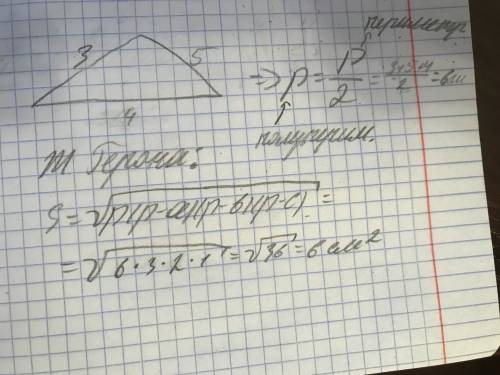 периметр
3 5
4
=> p = P/2 = 3+5+4/2 = 6см
полуперим.
Т Герона:
S = √p(p-a)(p-b)(p-c) =
= √6·3·2·1 = √36 = 6 см²